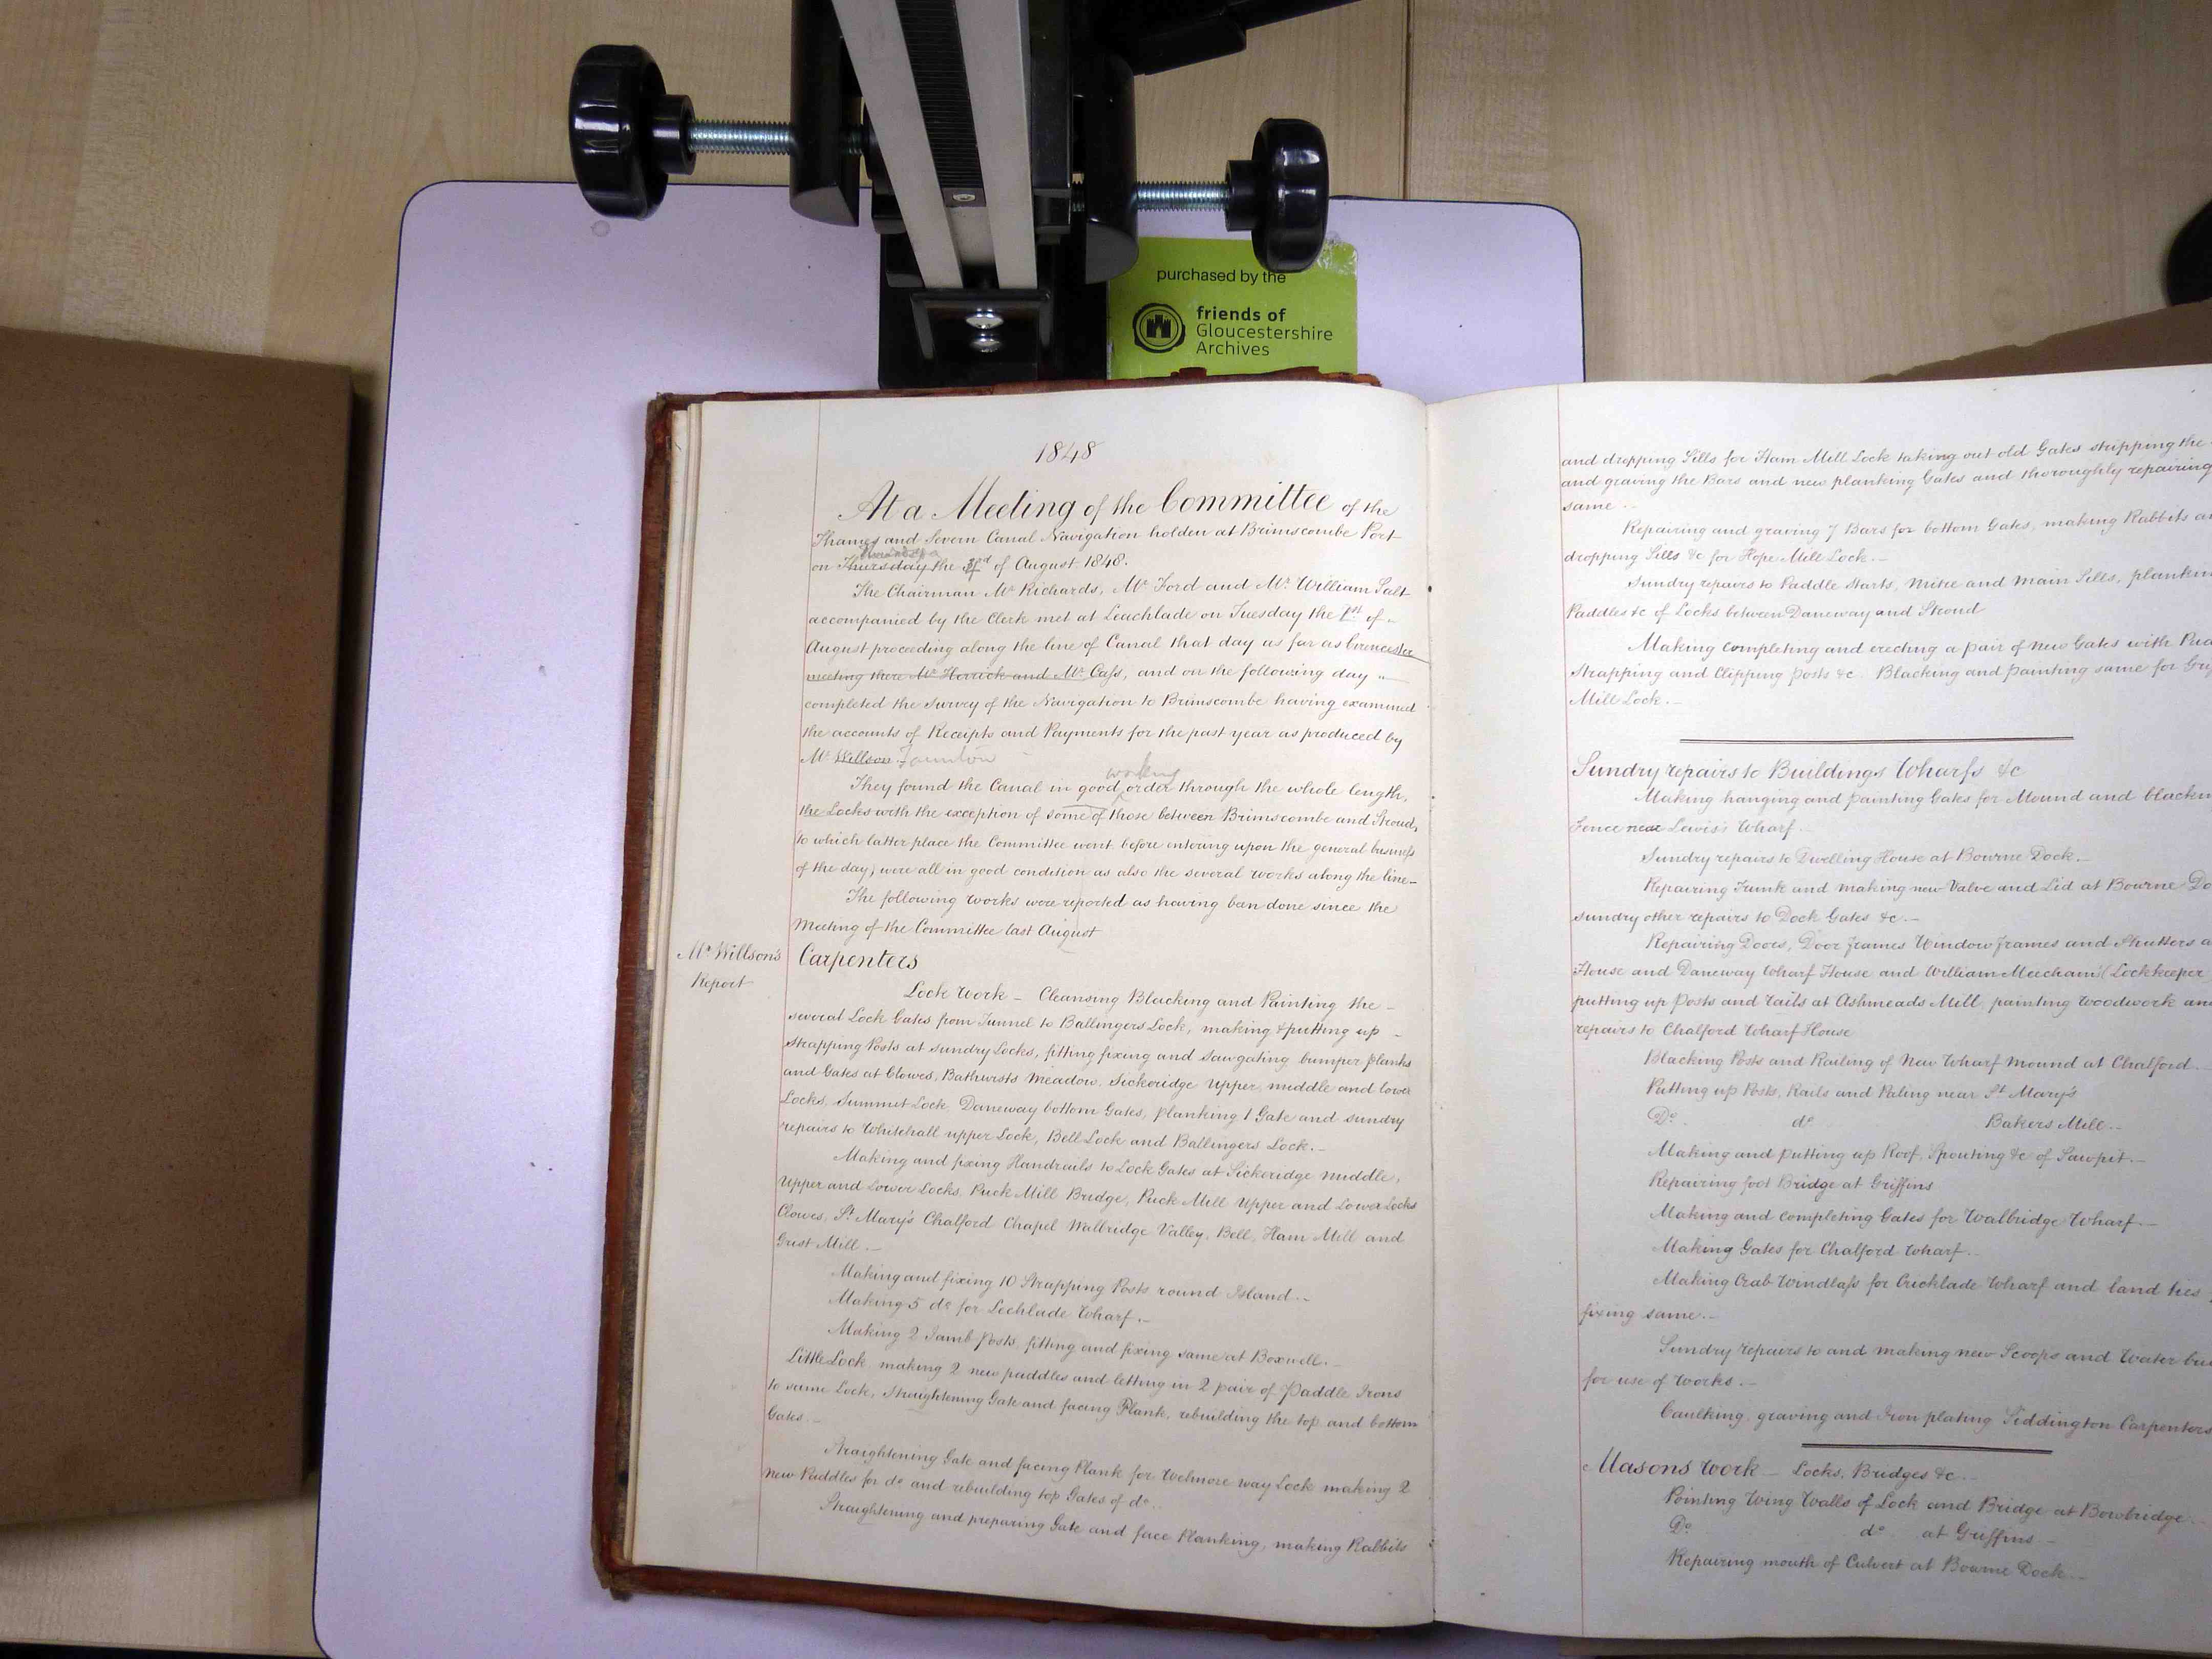 purchased by the
friends of
Gloucestershire
Archives
1848
At a Meeting of the Committee of the
Thames and Severn Canal Navigation holden at Brimscombe Port
on Thursday the 3rd of August 1848.
The Chairman Mr Richards, Mr Ford and Mr William Salt
accompanied by the Clerk met at Leachlade on Tuesday the 1st of
August proceeding along the line of Canal that day as far as Cirencester
meeting there Mr Herrick and Mr Cass, and on the following day
completed the survey of the Navigation to Brimscombe having examined
the accounts of Receipts and Payments for the past year as produced by
Mr Willson Taunton
working
They found the Canal in good order through the whole length,
the Locks with the exception of some of those between Brimscombe and Stroud,
to which latter place the Committee went before entering upon the general business
of the day) were all in good condition as also the several works along the line_
The following works were reported as having been done since the
Meeting of the Committee last August
Mr Willson's
Report
Carpenters
Lock Work _ Cleansing Blacking and Painting the _
several Lock Gates from Tunnel to Ballingers Lock, making & putting up _
strapping Posts at sundry Locks, fitting fixing and sawgating bumper planks
and Gates at Clowes, Bathursts Meadow, Sickeridge Upper, middle and lower
Locks, Summit Lock, Daneway bottom Gates, planking 1 Gate and sundry
repairs to Whitehall upper Lock, Bell Lock and Ballingers Lock._
Making and fixing Handrails to Lock Gates at Sickeridge middle,
Upper and Lower Locks, Puck Mill Bridge, Puck Mill Upper and Lower Locks
Clowes, St Mary's Chalford Chapel Walbridge Valley, Bell, Ham Mill and
Grist Mill._
Making and fixing 10 Strapping Posts round Island._
Making 5 do for Lechlade Wharf._
Making 2 Jamb posts, fitting and fixing same at Boxwell._
Little Lock, making 2 new paddles and letting in 2 pair of Paddle Irons
to same Lock, Straightening Gate and facing Plank, rebuilding the top and bottom
Gates._
Straightening Gate and facing Plank for Welmore way Lock making 2
new Paddles for do and rebuilding top Gates of do._
Straightening and preparing Gate and face Planking, making Rabbits
and dropping Sills for Ham Mill Lock taking out old Gates stripping the
and graving the Bars and new planking Gates and thoroughly repairing
same._
Repairing and graving 7 Bars for bottom Gates, making Rabbits
dropping Sills &c for Hope Mill Lock._
Sundry repairs to Paddle Starts, Mitre and Main Sills,
Paddles &c of Locks between Daneway and Stroud
Making completing and erecting a pair of new Gates with
Strapping and Clipping posts &c. Blacking and painting same for
Mill Lock._
Sundry repairs to Buildings Wharfs &c
Making hanging and painting Gates for Mound and
Fence near Lewis's Wharf._
Sundry repairs to Dwelling House at Bourne Dock._
Repairing Trunk and making new Valve and Lid at Bourne
sundry other repairs to Dock Gates &c._
Repairing Doors, Door frames Window frames and Shutters
House and Daneway Wharf House and William Meecham's (Lockkeeper
putting up Posts and rails at Ashmeads Mill, painting woodwork
repairs to Chalford Wharf House
Blacking Posts and Railing of New Wharf mound at Chalford._
Putting up Posts, Rails and Paling near St Mary's
Do. do Bakers Mill._
Making and putting up Roof, Spouting &c of Sawpit._
Repairing foot Bridge at Griffins
Making and completing Gates for Walbridge Wharf._
Making Gates for Chalford Wharf._
Making Crab Windlass for Cricklade Wharf and land ties
fixing same._
Sundry repairs to and making new Scoops and Water
for use of Works._
Caulking, graving and Iron plating Siddington Carpenters
Masons Work _ Locks, Bridges &c._
Pointing Wing Walls of Lock and Bridge at Bowbridge._
Do do at Griffins _
Repairing mouth of Culvert at Bourne Dock._